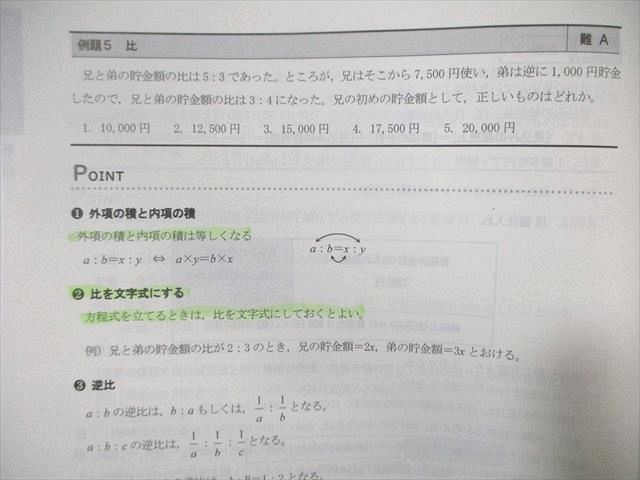 例題5 比 難 A
兄と弟の貯金額の比は5:3であった。ところが,兄はそこから7,500円使い,弟は逆に1,000円貯金
したので,兄と弟の貯金額の比は3:4になった。兄の初めの貯金額として,正しいものはどれか。
1. 10,000円 2. 12,500円 3. 15,000円 4. 17,500円 5. 20,000円
POINT
❶ 外項の積と内項の積
外項の積と内項の積は等しくなる
a:b=x:y ⇔ a×y=b×x a:b=x:y
❷ 比を文字式にする
方程式を立てるときは,比を文字式にしておくとよい。
例) 兄と弟の貯金額の比が2:3のとき,兄の貯金額=2x,弟の貯金額=3xとおける。
❸ 逆比
a:bの逆比は,b:aもしくは,1/a:1/bとなる。
a:b:cの逆比は,1/a:1/b:1/cとなる。